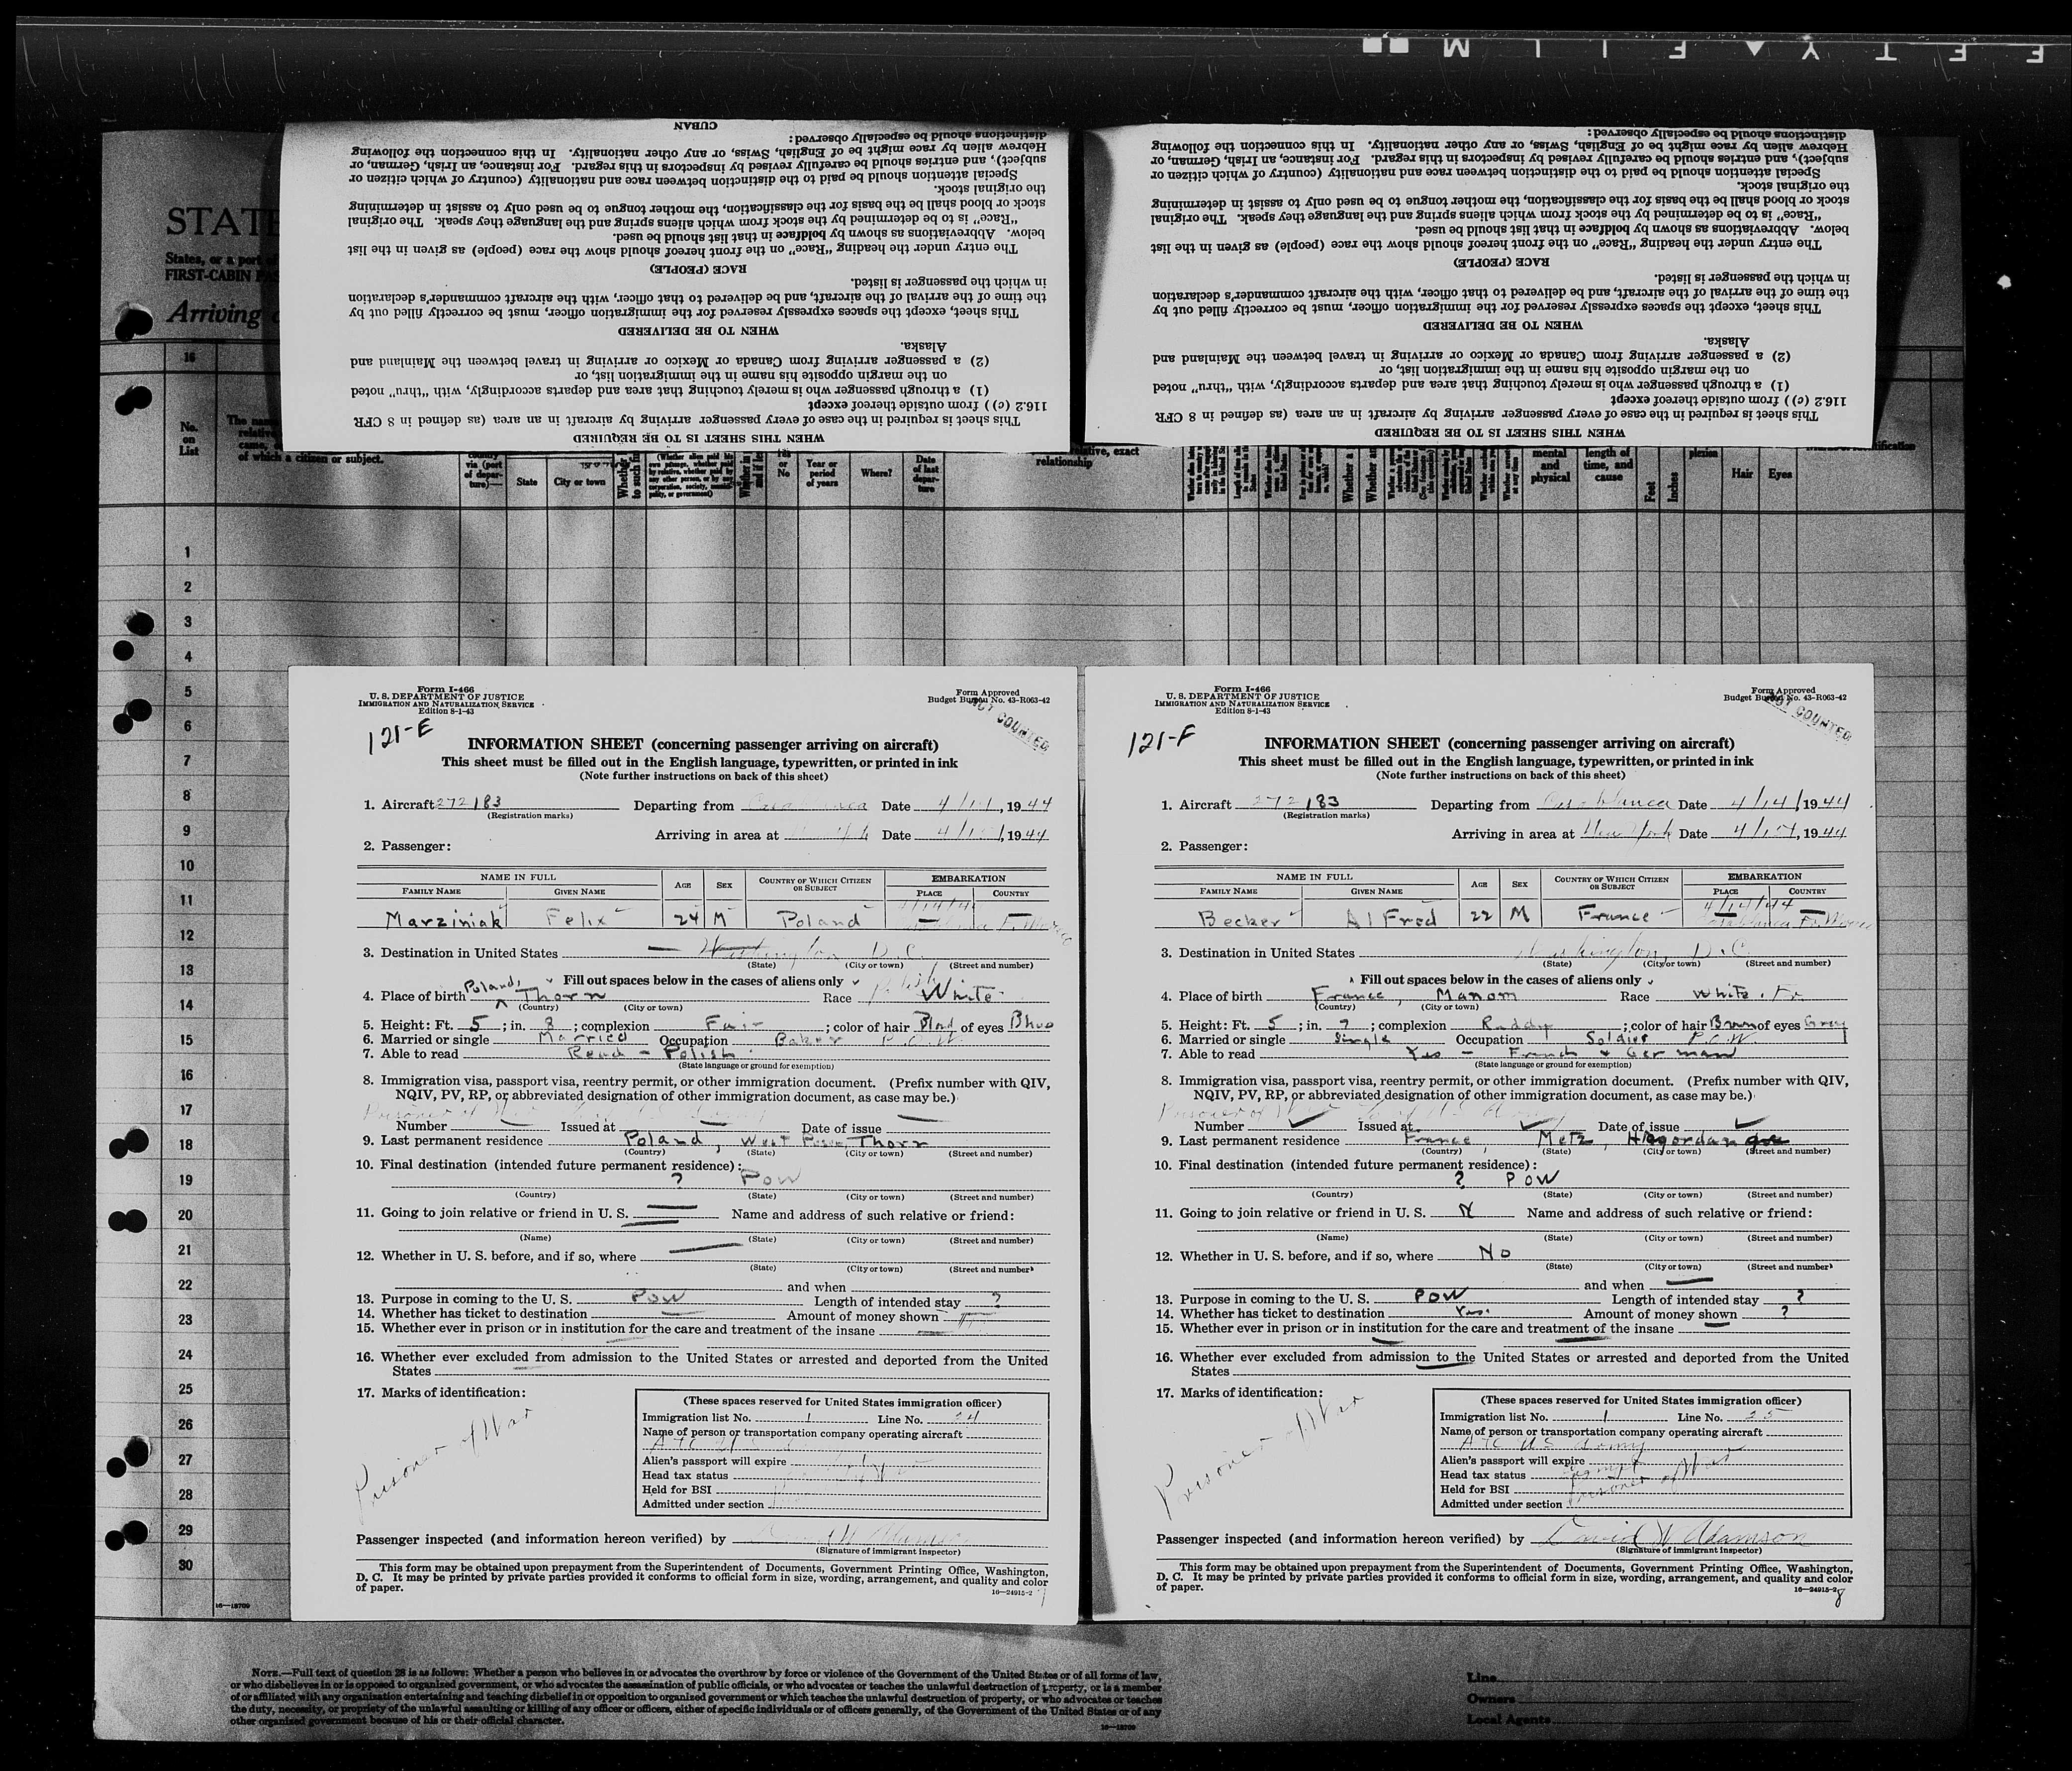 F E T Y ▲ F I L M ■■
CUBAN
distinctions should be especially observed:
Hebrew alien by race might be of English, Swiss, or any other nationality. In this connection the following
subject), and entries should be carefully revised by inspectors in this regard. For instance, an Irish, German, or
Special attention should be paid to the distinction between race and nationality (country of which citizen or
the original stock.
stock or blood shall be the basis for the classification, the mother tongue to be used only to assist in determining
"Race" is to be determined by the stock from which aliens spring and the language they speak. The original
below. Abbreviations as shown by boldface in that list should be used.
The entry under the heading "Race" on the front hereof should show the race (people) as given in the list
RACE (PEOPLE)
in which the passenger is listed.
the time of the arrival of the aircraft, and be delivered to that officer, with the aircraft commander's declaration
This sheet, except the spaces expressly reserved for the immigration officer, must be correctly filled out by
WHEN TO BE DELIVERED
Alaska.
(2) a passenger arriving from Canada or Mexico or arriving in travel between the Mainland and
on the margin opposite his name in the immigration list, or
(1) a through passenger who is merely touching that area and departs accordingly, with "thru" noted
116.2 (c) ) from outside thereof except
This sheet is required in the case of every passenger arriving by aircraft in an area (as defined in 8 CFR
WHEN THIS SHEET IS TO BE REQUIRED
distinctions should be especially observed:
Hebrew alien by race might be of English, Swiss, or any other nationality. In this connection the following
subject), and entries should be carefully revised by inspectors in this regard. For instance, an Irish, German, or
Special attention should be paid to the distinction between race and nationality (country of which citizen or
the original stock.
stock or blood shall be the basis for the classification, the mother tongue to be used only to assist in determining
"Race" is to be determined by the stock from which aliens spring and the language they speak. The original
below. Abbreviations as shown by boldface in that list should be used.
The entry under the heading "Race" on the front hereof should show the race (people) as given in the list
RACE (PEOPLE)
in which the passenger is listed.
the time of the arrival of the aircraft, and be delivered to that officer, with the aircraft commander's declaration
This sheet, except the spaces expressly reserved for the immigration officer, must be correctly filled out by
WHEN TO BE DELIVERED
Alaska.
(2) a passenger arriving from Canada or Mexico or arriving in travel between the Mainland and
on the margin opposite his name in the immigration list, or
(1) a through passenger who is merely touching that area and departs accordingly, with "thru" noted
116.2 (c) ) from outside thereof except
This sheet is required in the case of every passenger arriving by aircraft in an area (as defined in 8 CFR
WHEN THIS SHEET IS TO BE REQUIRED
STATE
States, or a port
FIRST-CABIN
Arriving
16
No. on List
of which a citizen or subject.
via (port of departure)—
State
City or town
or No
Year or period of years
Where?
Date of last departure
relationship
mental and physical
length of time, and cause
Feet
Inches
Hair
Eyes
1
2
3
4
5
6
7
8
9
10
11
12
13
14
15
16
17
18
19
20
21
22
23
24
25
26
27
28
29
30
16—18709
Form I-466
U. S. DEPARTMENT OF JUSTICE
IMMIGRATION AND NATURALIZATION SERVICE
Edition 8-1-43
Form Approved
Budget Bureau No. 43-R063-42
NOT COUNTED
121-E
INFORMATION SHEET (concerning passenger arriving on aircraft)
This sheet must be filled out in the English language, typewritten, or printed in ink
(Note further instructions on back of this sheet)
1. Aircraft 272183 Departing from Casablanca Date 4/14, 1944
(Registration marks)
Arriving in area at Date 4/15/, 1944
2. Passenger:
NAME IN FULL
FAMILY NAME GIVEN NAME AGE SEX COUNTRY OF WHICH CITIZEN OR SUBJECT EMBARKATION
PLACE COUNTRY
Marziniak Felix 24 M Poland
3. Destination in United States Washington D.C.
(State) (City or town) (Street and number)
Fill out spaces below in the cases of aliens only
4. Place of birth Poland, Thorn Race Polish White
(Country) (City or town)
5. Height: Ft. 5; in. 8; complexion Fair; color of hair Blond of eyes Blue
6. Married or single Married Occupation Baker P.O.W.
7. Able to read Read - Polish
(State language or ground for exemption)
8. Immigration visa, passport visa, reentry permit, or other immigration document. (Prefix number with QIV,
NQIV, PV, RP, or abbreviated designation of other immigration document, as case may be.)
Prisoner of War
Number Issued at Date of issue
9. Last permanent residence Poland, West Thorn
(Country) (State) (City or town) (Street and number)
10. Final destination (intended future permanent residence):
? POW
(Country) (State) (City or town) (Street and number)
11. Going to join relative or friend in U. S. Name and address of such relative or friend:
(Name) (State) (City or town) (Street and number)
12. Whether in U. S. before, and if so, where
(State) (City or town) (Street and number)
and when
13. Purpose in coming to the U. S. POW Length of intended stay ?
14. Whether has ticket to destination Amount of money shown
15. Whether ever in prison or in institution for the care and treatment of the insane
16. Whether ever excluded from admission to the United States or arrested and deported from the United
States
17. Marks of identification:
Prisoner of War
(These spaces reserved for United States immigration officer)
Immigration list No. 1 Line No. 24
Name of person or transportation company operating aircraft
ATC U.S.
Alien's passport will expire
Head tax status
Held for BSI
Admitted under section
Passenger inspected (and information hereon verified) by
(Signature of immigrant inspector)
This form may be obtained upon prepayment from the Superintendent of Documents, Government Printing Office, Washington,
D. C. It may be printed by private parties provided it conforms to official form in size, wording, arrangement, and quality and color
of paper.
16—24915-2
Form I-466
U. S. DEPARTMENT OF JUSTICE
IMMIGRATION AND NATURALIZATION SERVICE
Edition 8-1-43
Form Approved
Budget Bureau No. 43-R063-42
NOT COUNTED
121-F
INFORMATION SHEET (concerning passenger arriving on aircraft)
This sheet must be filled out in the English language, typewritten, or printed in ink
(Note further instructions on back of this sheet)
1. Aircraft 272183 Departing from Casablanca Date 4/14/1944
(Registration marks)
Arriving in area at New York Date 4/15/, 1944
2. Passenger:
NAME IN FULL
FAMILY NAME GIVEN NAME AGE SEX COUNTRY OF WHICH CITIZEN OR SUBJECT EMBARKATION
PLACE COUNTRY
4/14/44
Becker AlFred 22 M France Casablanca Fr. Morocco
3. Destination in United States Washington, D.C.
(State) (City or town) (Street and number)
Fill out spaces below in the cases of aliens only
4. Place of birth France, Manom Race White. Fr.
(Country) (City or town)
5. Height: Ft. 5; in. 7; complexion Ruddy; color of hair Brown of eyes Grey
6. Married or single Single Occupation Soldier P.O.W.
7. Able to read Yes - French & German
(State language or ground for exemption)
8. Immigration visa, passport visa, reentry permit, or other immigration document. (Prefix number with QIV,
NQIV, PV, RP, or abbreviated designation of other immigration document, as case may be.)
Prisoner of War of U.S. Army
Number Issued at Date of issue
9. Last permanent residence France, Metz,
(Country) (State) (City or town) (Street and number)
10. Final destination (intended future permanent residence):
? POW
(Country) (State) (City or town) (Street and number)
11. Going to join relative or friend in U. S. N Name and address of such relative or friend:
(Name) (State) (City or town) (Street and number)
12. Whether in U. S. before, and if so, where No
(State) (City or town) (Street and number)
and when
13. Purpose in coming to the U. S. POW Length of intended stay ?
14. Whether has ticket to destination Yes. Amount of money shown ?
15. Whether ever in prison or in institution for the care and treatment of the insane
16. Whether ever excluded from admission to the United States or arrested and deported from the United
States
17. Marks of identification:
Prisoner of War
(These spaces reserved for United States immigration officer)
Immigration list No. 1 Line No. 25
Name of person or transportation company operating aircraft
ATC US Army
Alien's passport will expire
Head tax status Exempt
Held for BSI
Admitted under section Prisoner of War
Passenger inspected (and information hereon verified) by David W Adamson
(Signature of immigrant inspector)
This form may be obtained upon prepayment from the Superintendent of Documents, Government Printing Office, Washington,
D. C. It may be printed by private parties provided it conforms to official form in size, wording, arrangement, and quality and color
of paper.
16—24915-2
8
NOTE.—Full text of question 28 is as follows: Whether a person who believes in or advocates the overthrow by force or violence of the Government of the United States or of all forms of law,
or who disbelieves in or is opposed to organized government, or who advocates the assassination of public officials, or who advocates or teaches the unlawful destruction of property, or is a member
of or affiliated with any organization entertaining and teaching disbelief in or opposition to organized government or which teaches the unlawful destruction of property, or who advocates or teaches
the duty, necessity, or propriety of the unlawful assaulting or killing of any officer or officers, either of specific individuals or of officers generally, of the Government of the United States or of any
other organized government because of his or their official character.
16—18709
Line
Owners
Local Agents